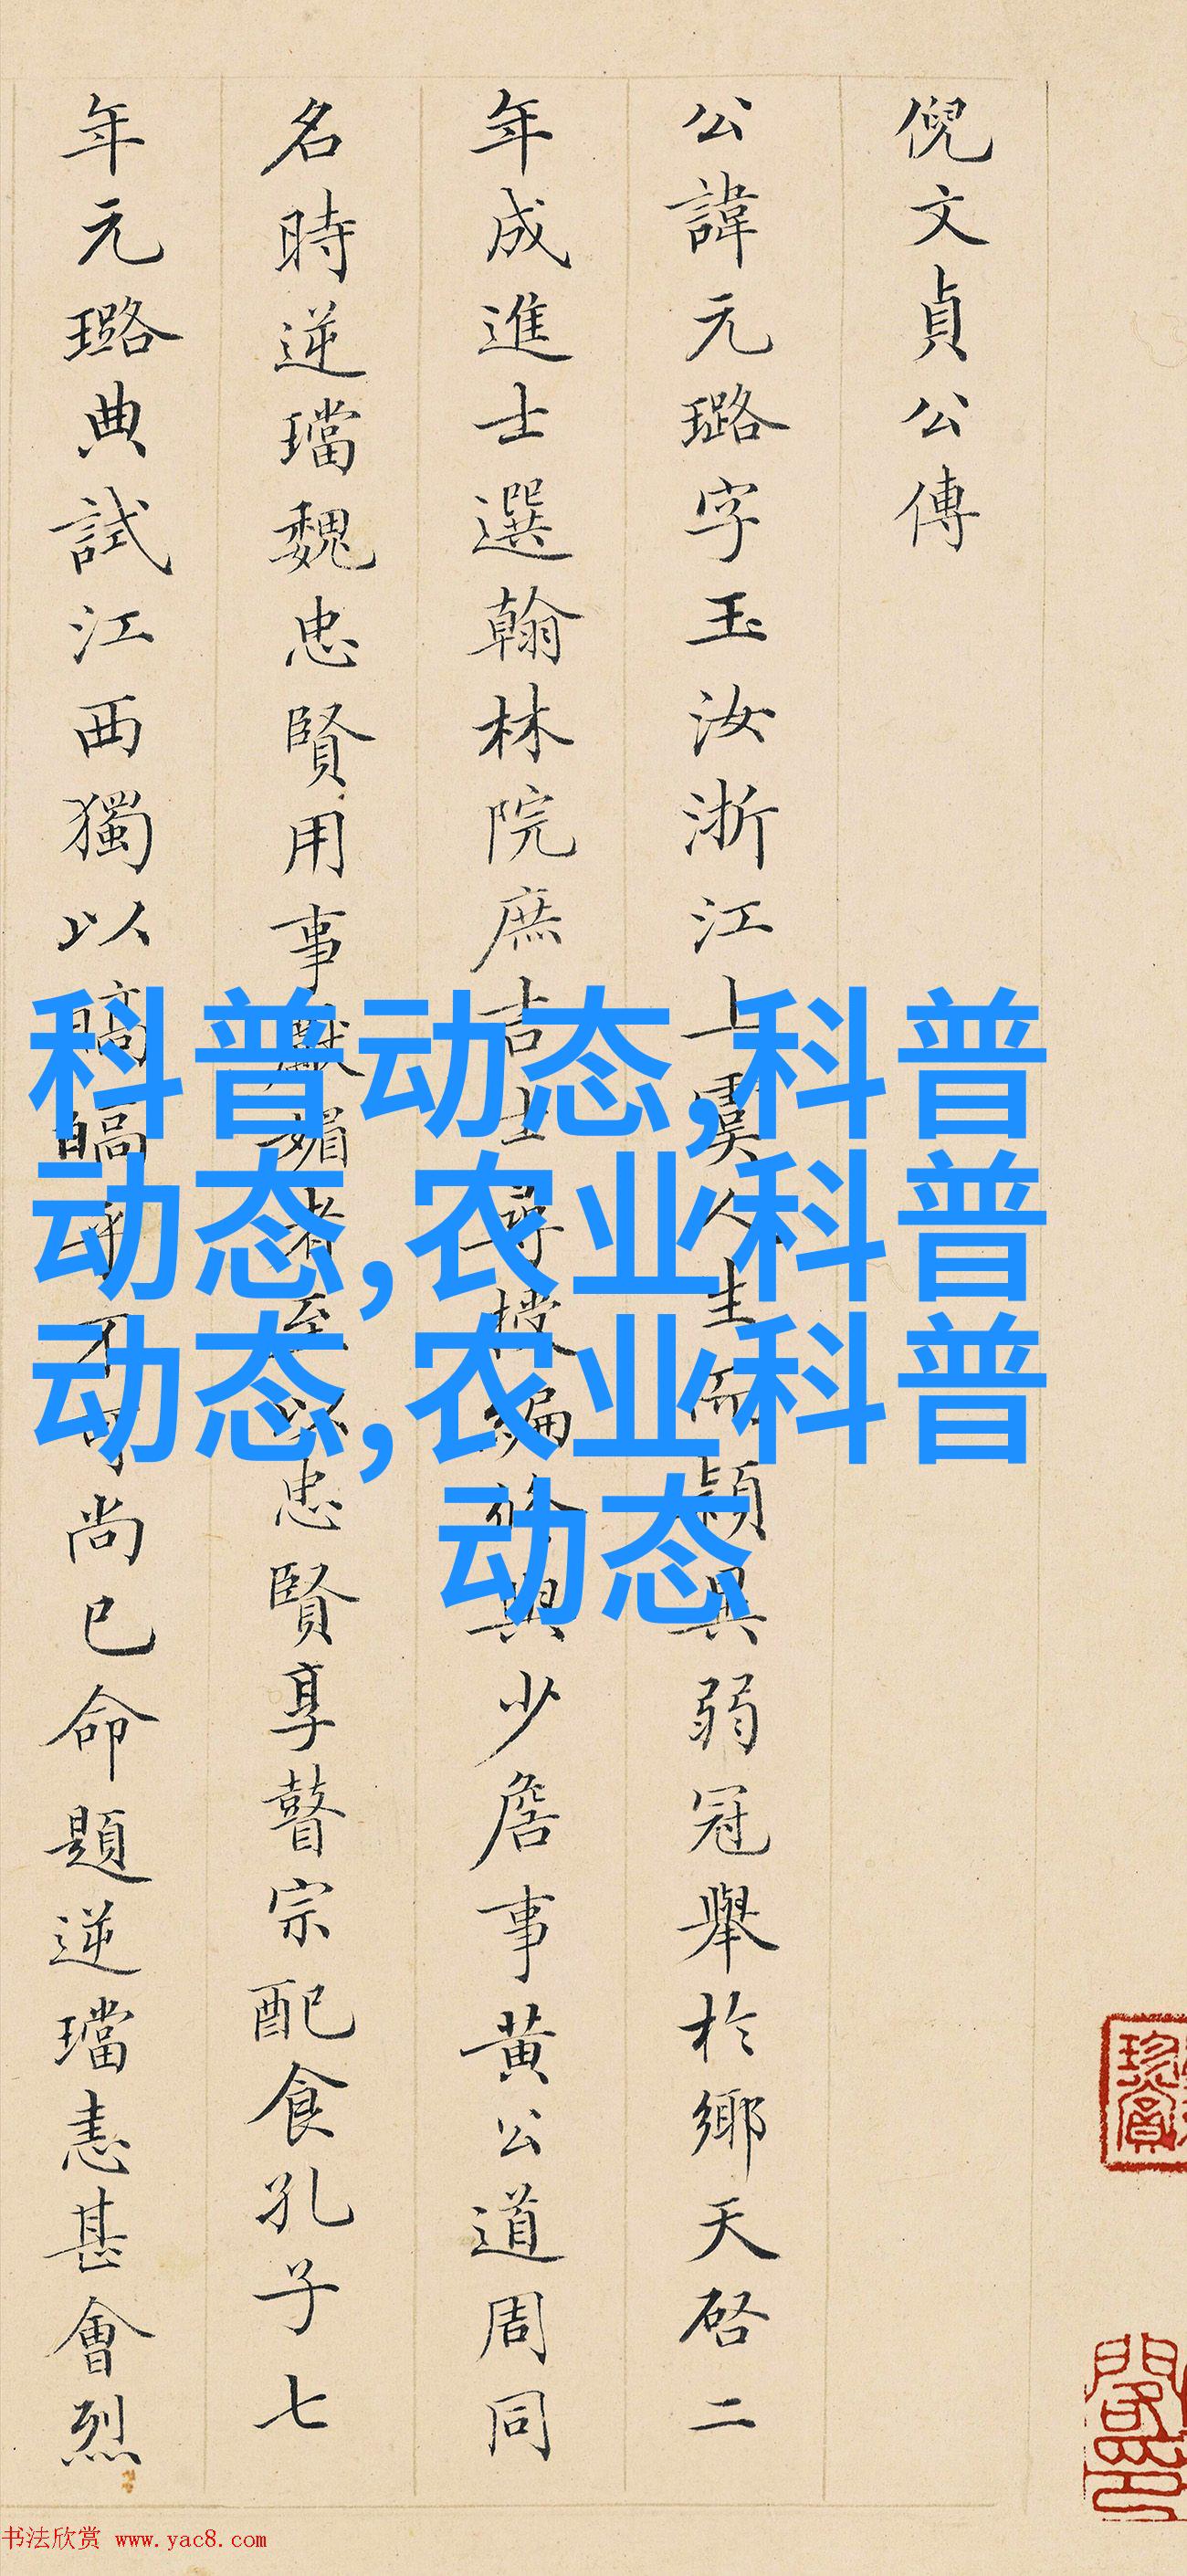 倪文貞公傳
公諱元璐字玉汝浙江上虞人生而穎異弱冠舉於鄉天啓二
年成進士選翰林院庶吉士尋授編修與少詹事黃公道周同
名時逆璫魏忠賢用事獻媚者至以忠賢享瞽宗配食孔子七
年元璐典試江西獨以皜皜乎不可尚已命題逆璫恚甚會烈
科普动态,科普
动态,农业科普
动态,农业科普
动态
书法欣赏 www.yac8.com